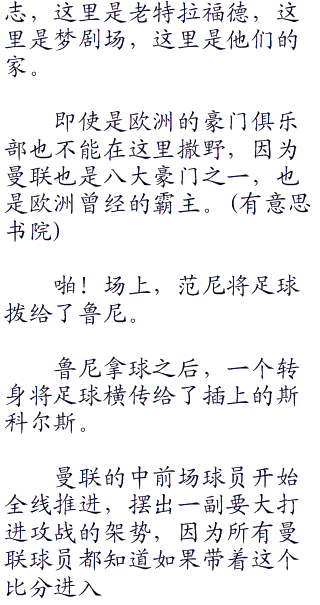 志，这里是老特拉福德，这
里是梦剧场，这里是他们的
家。
即使是欧洲的豪门俱乐
部也不能在这里撒野，因为
曼联也是八大豪门之一，也
是欧洲曾经的霸主。(有意思
书院)
啪！场上，范尼将足球
拨给了鲁尼。
鲁尼拿球之后，一个转
身将足球横传给了插上的斯
科尔斯。
曼联的中前场球员开始
全线推进，摆出一副要大打
进攻战的架势，因为所有曼
联球员都知道如果带着这个
比分进入